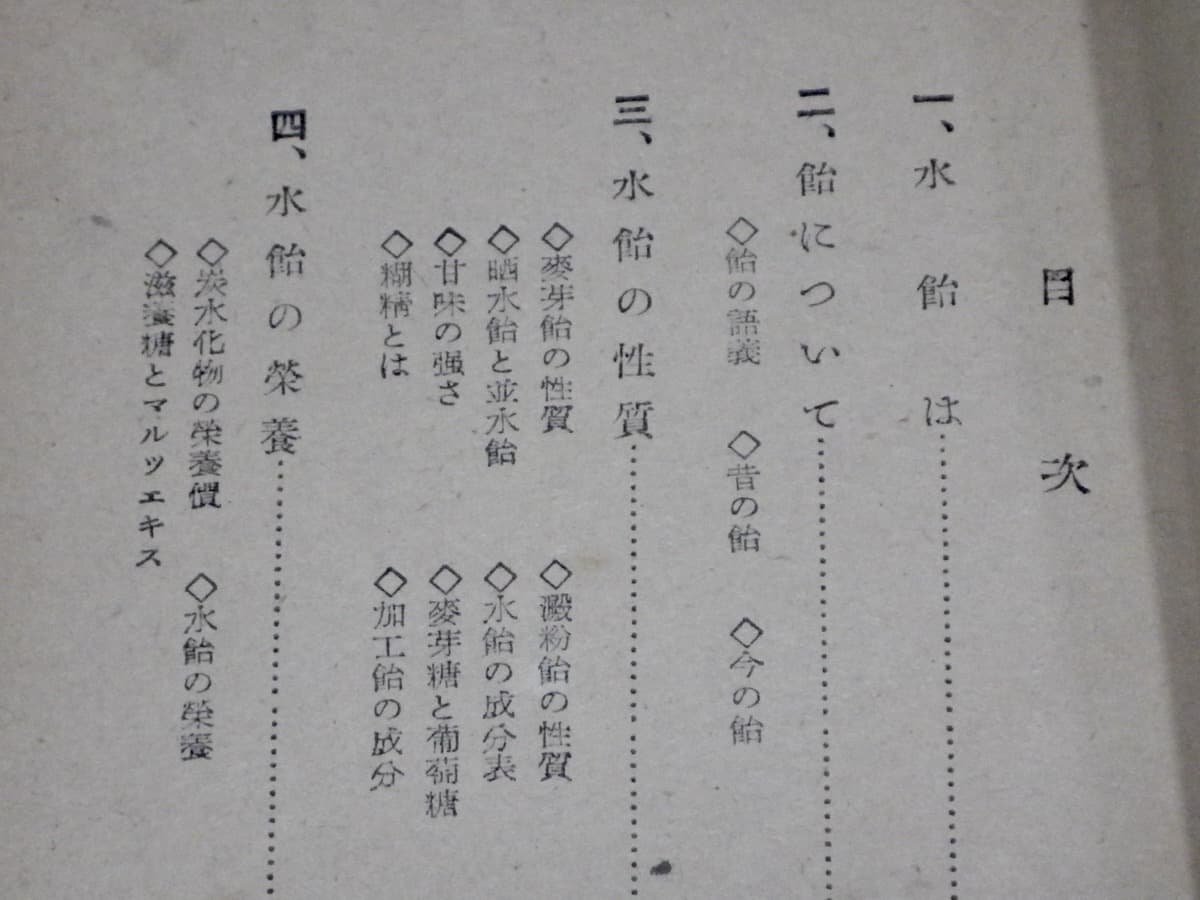 目次
一、水飴は……………………
二、飴について……………………
◇飴の語義　◇昔の飴　◇今の飴
三、水飴の性質……………………
◇麥芽飴の性質　◇澱粉飴の性質
◇晒水飴と並水飴　◇水飴の成分表
◇甘味の强さ　◇麥芽糖と葡萄糖
◇糊精とは　◇加工飴の成分
四、水飴の榮養……………………
◇炭水化物の榮養價　◇水飴の榮養
◇滋養糖とマルツエキス